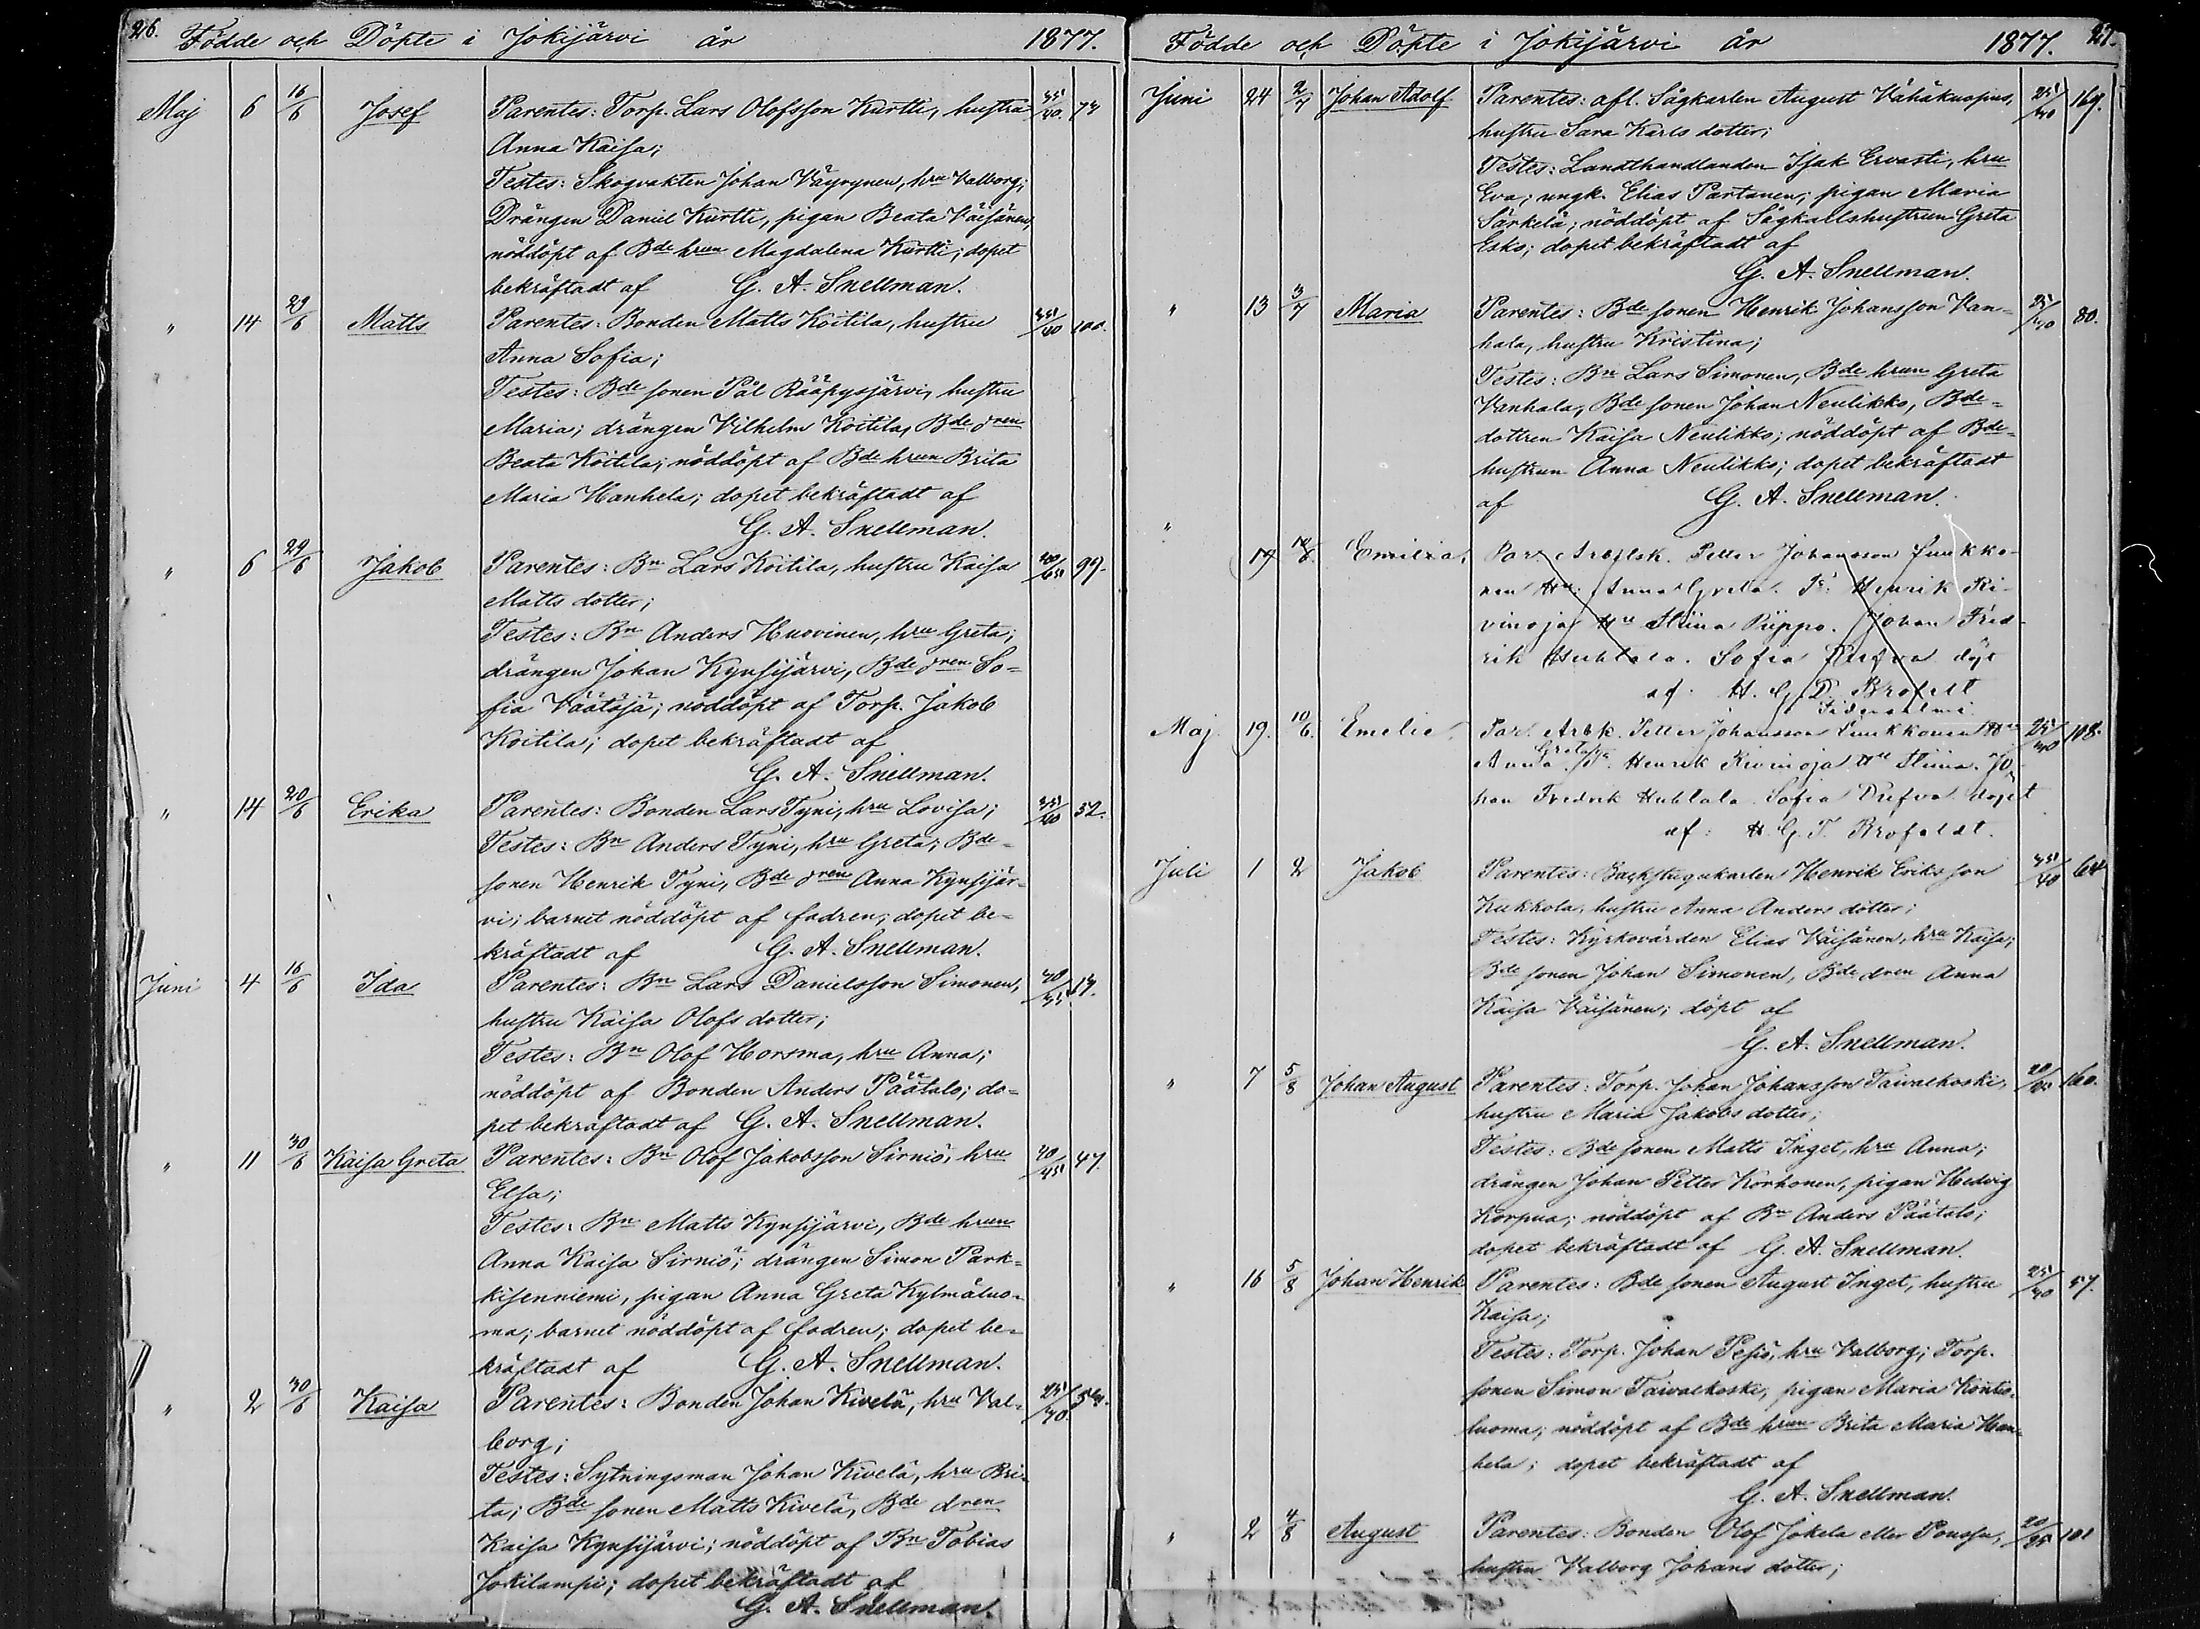 26. Födde och Döpte i Jokijärvi år 1877.
Maj 6 16/6 Josef Parentes: Torp. Lars Olofsson Kurtti, hustru 35/40. 74
Anna Kaisa;
Testes: Skogvakten Johan Väyrynen, hru Valborg;
Drängen Daniel Kurtti, pigan Beata Väisänen,
nöddöpt af Bde hrun Magdalena Kurtti; dopet
bekräftadt af G. A. Snellman.
" 14 29/6 Matts Parentes: Bonden Matts Koitila, hustru 35/40 100.
Anna Sofia;
Testes: Bde sonen Pål Rääpysjärvi, hustru
Maria; drängen Vilhelm Koitila, Bde dren
Beata Koitila; nöddöpt af Bde hrun Brita
Maria Hanhela; dopet bekräftadt af
G. A. Snellman.
" 6 29/6 Jakob Parentes: Bn Lars Koitila, hustru Kaisa 99.
Matts dotter;
Testes: Bn Anders Huovinen, hru Greta;
drängen Johan Kynsijärvi, Bde dren So=
fia Väätäjä; nöddöpt af Torp. Jakob
Koitila; dopet bekräftadt af
G. A. Snellman.
" 14 20/6 Erika Parentes: Bonden Lars Tyni, hru Lovisa; 52.
Testes: Bn Anders Tyni, hru Greta; Bde=
sonen Henrik Tyni, Bde dren Anna Kynsijär=
vi; barnet nöddöpt af fadren; dopet be=
kräftadt af G. A. Snellman.
Juni 4 16/6 Ida Parentes: Bn Lars Danielsson Simonen,
hustru Kaisa Olofs dotter;
Testes: Bn Olof Horsma, hru Anna;
nöddöpt af Bonden Anders Päätalo; do=
pet bekräftadt af G. A. Snellman.
" 11 30/6 Kaisa Greta Parentes: Bn Olof Jakobsson Sirniö, hru 40/45 47.
Elsa;
Testes: Bn Matts Kynsijärvi, Bde hrun
Anna Kaisa Sirniö; drängen Simon Park=
kisenniemi, pigan Anna Greta Kylmäluo=
ma; barnet nöddöpt af fadren; dopet be=
kräftadt af G. A. Snellman.
" 2 30/6 Kaisa Parentes: Bonden Johan Kivelä, hru Val=
borg;
Testes: Sytningsman Johan Kivelä, hru Bri=
ta; Bde sonen Matts Kivelä, Bde dren
Kaisa Kynsijärvi; nöddöpt af Bn Tobias
Jokilampi; dopet bekräftadt af
G. A. Snellman.
Födde och Döpte i Jokijärvi år 1877. 27.
Juni 24 2/7 Johan Adolf Parentes: afl. Sågkarlen August Vähäkuopus, 35/40 169.
hustru Sara Karls dotter;
Testes: Landthandlanden Isak Ervasti, hru
Eva; ungk. Elias Partanen; pigan Maria
Särkelä; nöddöpt af Sågkarlshustrun Greta
Esko; dopet bekräftadt af
G. A. Snellman.
" 13 3/7 Maria Parentes: Bde sonen Henrik Johansson Van= 25/40 80.
hala, hustru Kristina;
Testes: Bn Lars Simonen, Bde hrun Greta
Vanhala, Bde sonen Johan Neulikko, Bde=
dottren Kaisa Neulikko; nöddöpt af Bde=
hustrun Anna Neulikko; dopet bekräftadt
af G. A. Snellman.
"
19 10/6. Emilia. Par. Arbtsk. Petter Johansson Luukko-
nen Hu: Anna Greta. T: Henrik Ki-
vinoja Hu Stiina Piippo. Johan Fred-
rik Huhtala. Sofia döpt
af. H. G. T. Brofeldt
Maj 19. 10/6. Emelie. Par. Arbk. Petter Johansson Luukkonen Hu 25/40 108.
Anna Greta. Henrik Kivinoja Hu Stiina. Jo-
han Fredrik Huhtala. Sofia dopet
af: H. G. T. Brofeldt.
Juli 1 2 Jakob Parentes: Backstugukarlen Henrik Eriksson 35/40 64
Kukkola, hustru Anna Anders dotter;
Testes: Kyrkovärden Elias Väisänen, hru Kaisa;
Bde sonen Johan Simonen, Bde dren Anna
Kaisa Väisänen; döpt af
G. A. Snellman.
" 7 5/8 Johan August Parentes: Torp. Johan Johansson Taivalkoski, 160.
hustru Maria Jakobs dotter;
Testes: Bde sonen Matts Inget, hru Anna;
drängen Johan Petter Korhonen, pigan Hedvig
Korpua; nöddöpt af Bn Anders Päätalo;
dopet bekräftadt af G. A. Snellman.
" 16 5/8 Johan Henrik Parentes: Bde sonen August Inget, hustru 25/40 57.
Kaisa;
Testes: Torp. Johan Pesiö, hru Valborg; Torp.
sonen Simon Taivalkoski, pigan Maria Kontio=
luoma; nöddöpt af Bde hrun Brita Maria Han=
hela; dopet bekräftadt af
G. A. Snellman.
" 2 4/8 August Parentes: Bonden Olof Jokela eller Poussa, 101
hustru Valborg Johans dotter;